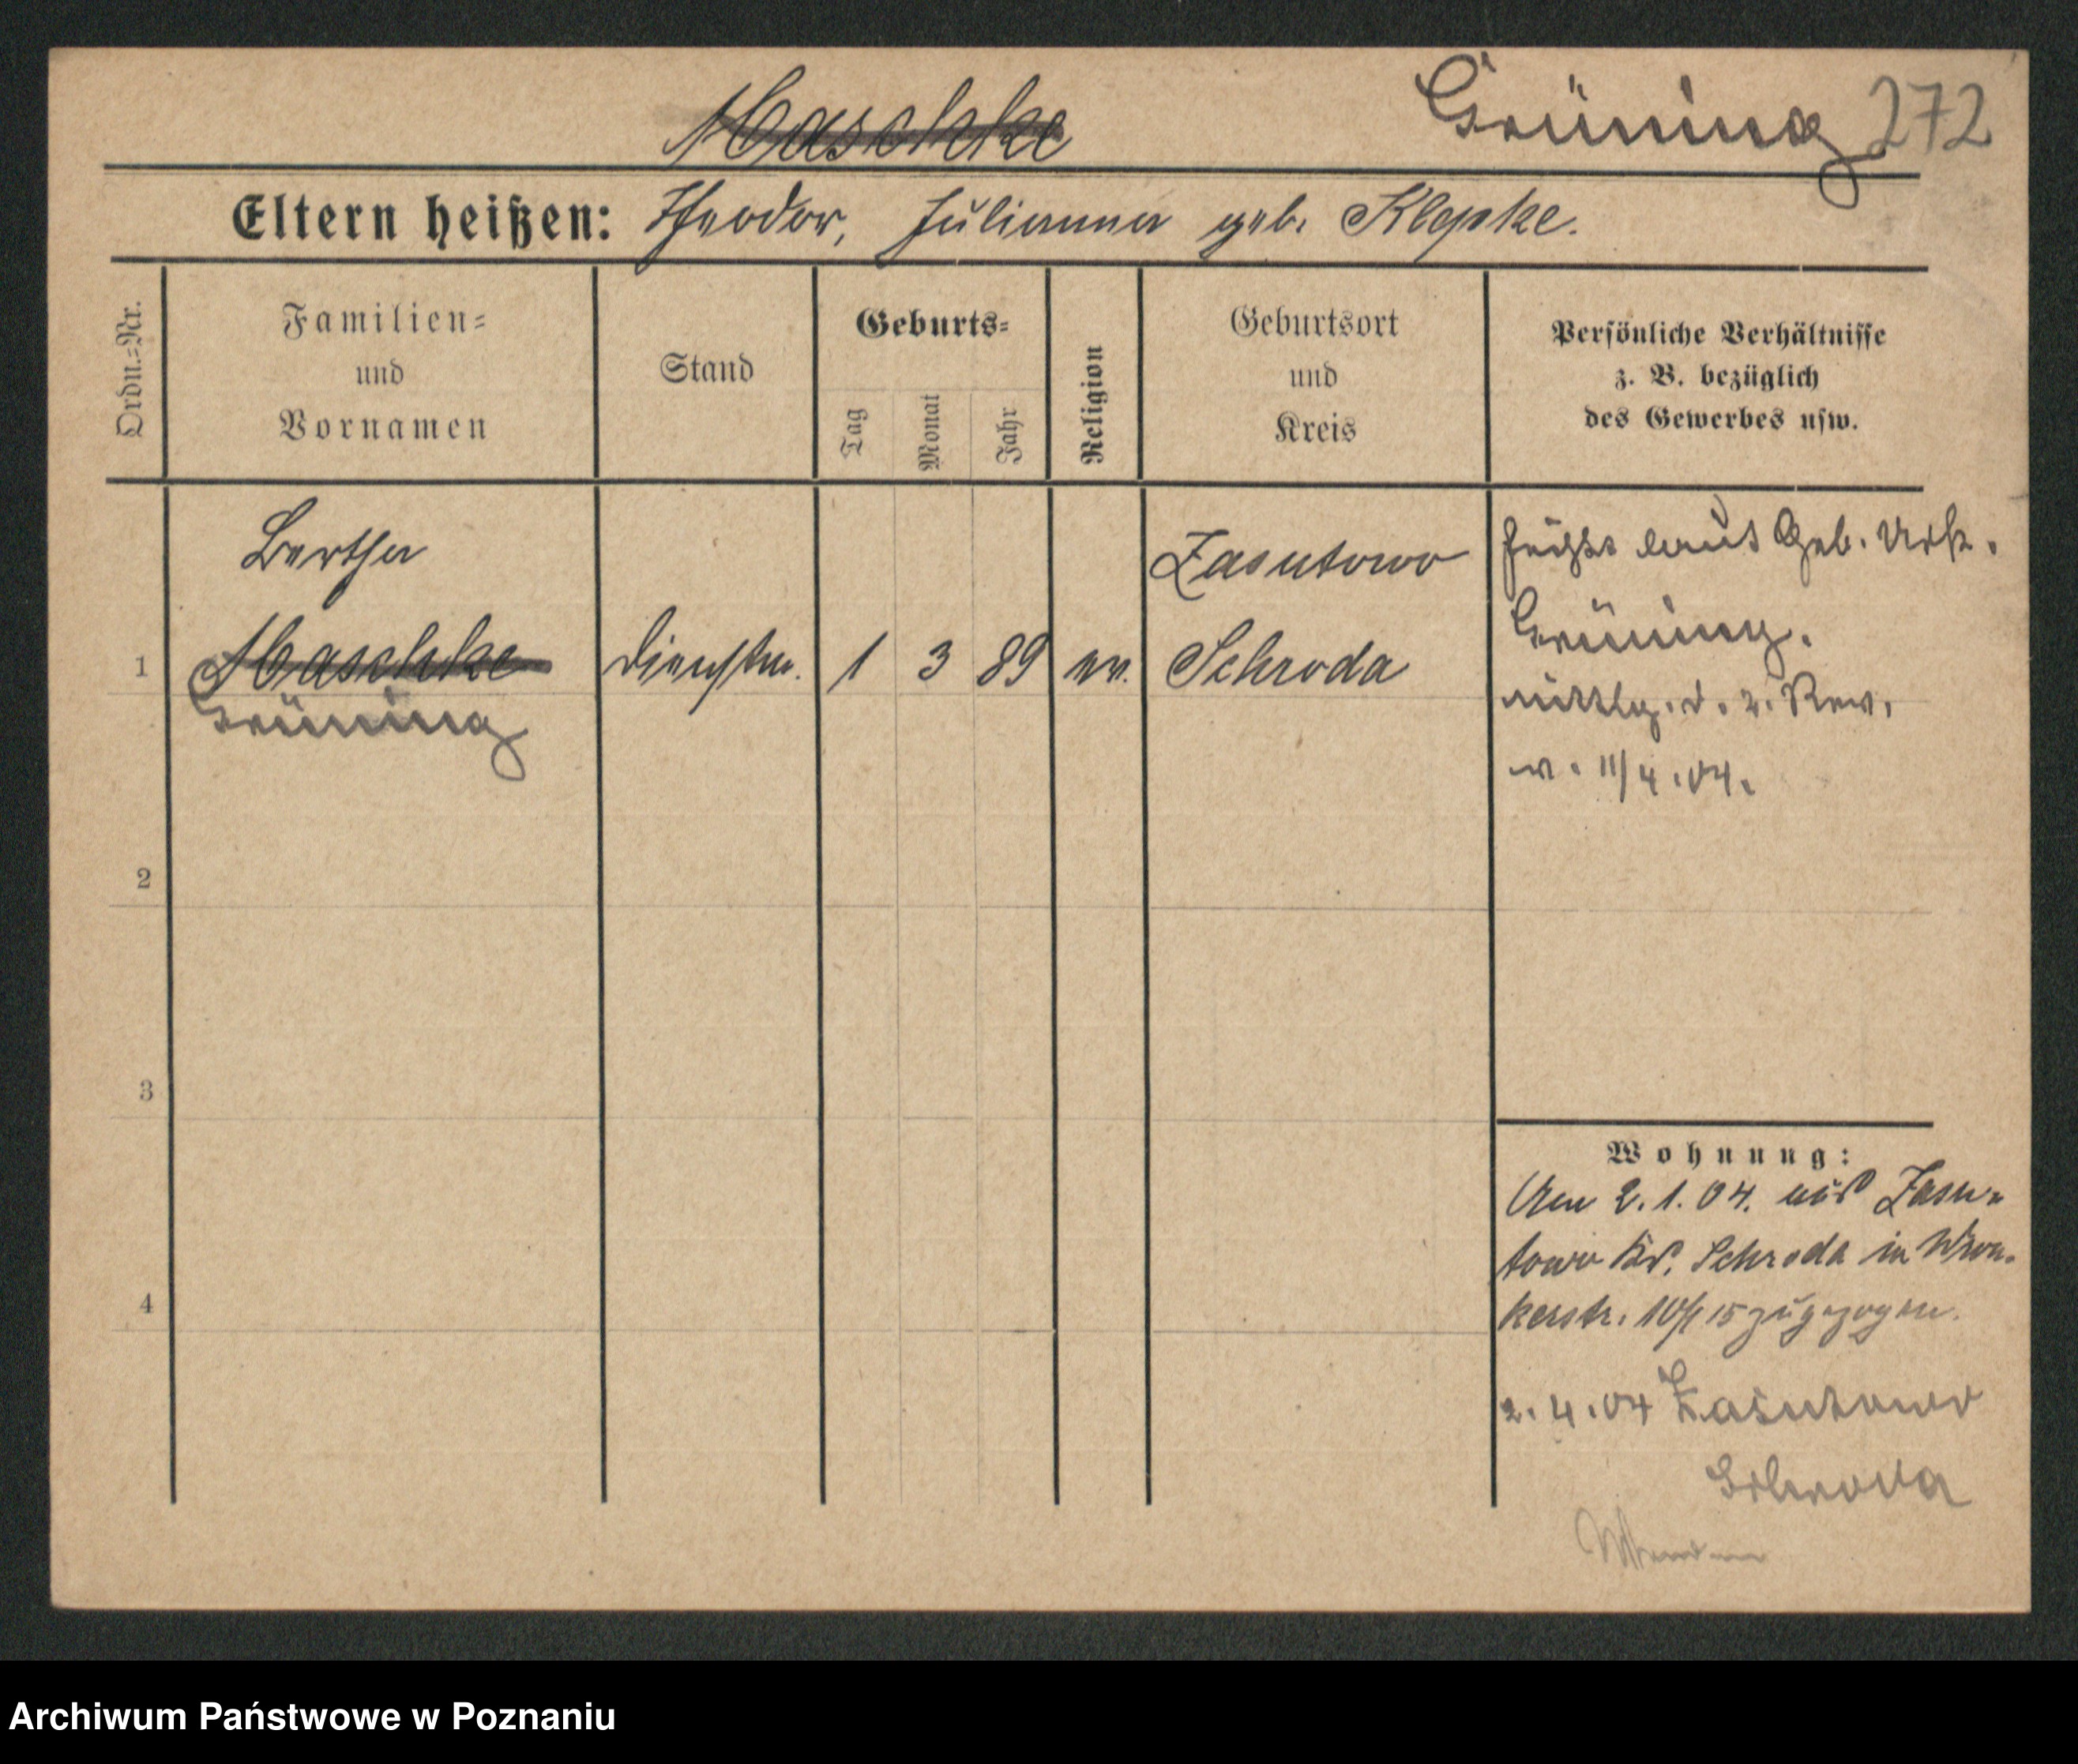 Maschke Grüning 272
Eltern heißen: Theodor, Julianna geb. Klepke.
Ordn.=Nr.
Familien=
und
Vornamen
Stand
Geburts=
Tag
Monat
Jahr
Religion
Geburtsort
und
Kreis
Persönliche Verhältnisse
z. B. bezüglich
des Gewerbes usw.
1
Bertha
Maschke
Grüning
Dienstm.
1 3 89
ev.
Zasutowo
Schroda
heißt laut Geb. Urk.
Grüning.
Mittlg. d. 2. Rev.
v. 11/4.04.
2
3
4
Wohnung:
Am 2.1.04. aus Zasu=
towo Kr. Schroda in Wron=
kerstr. 10/ 15 zugezogen.
2.4.04 Zasutowo
Schroda
Archiwum Państwowe w Poznaniu